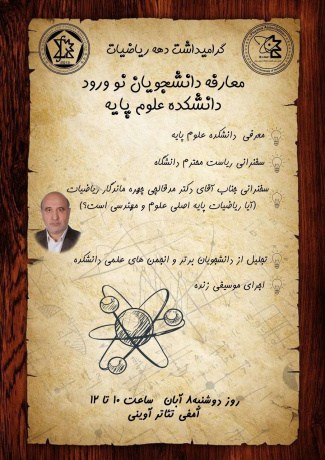 گرامیداشت دهه ریاضیات
معارفه دانشجویان نو ورود
دانشکده علوم پایه
معرفی دانشکده علوم پایه
سخنرانی ریاست محترم دانشگاه
سخنرانی جناب آقای دکتر مدقالچی چهره ماندگار ریاضیات
(آیا ریاضیات پایه اصلی علوم و مهندسی است؟)
تجلیل از دانشجویان برتر و انجمن های علمی دانشکده
اجرای موسیقی زنده
روز دوشنبه ۸ آبان ساعت ۱۰ تا ۱۲
آمفی تئاتر آوینی